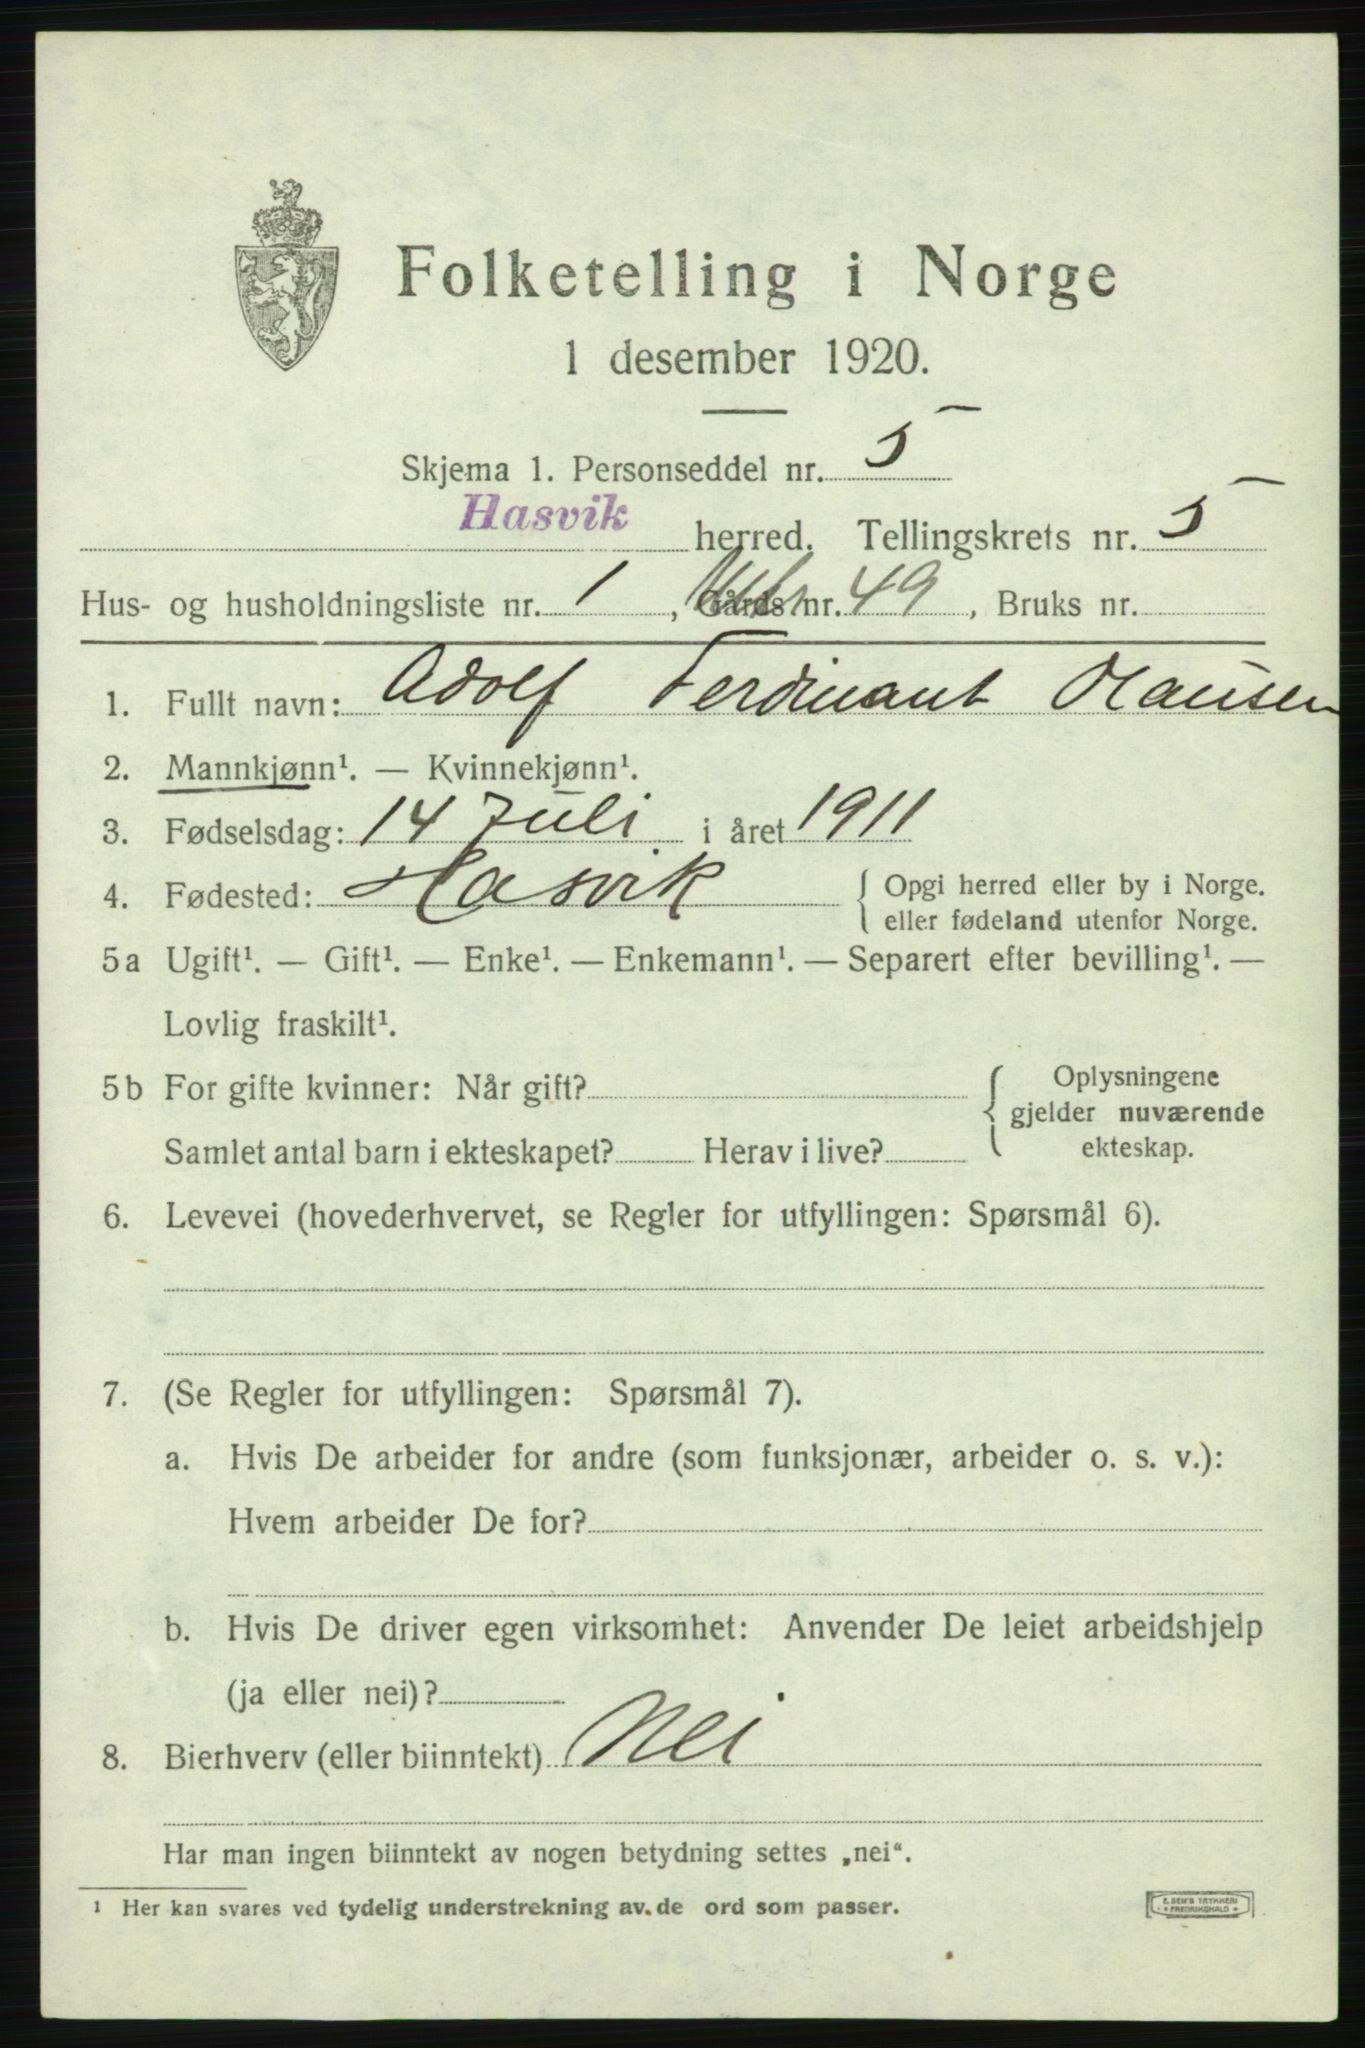 Folketelling i Norge
1 desember 1920.
Skjema 1. Personseddel nr. 5
Hasvik herred. Tellingskrets nr. 5
Hus- og husholdningsliste nr. 1, Gårds nr. 49, Bruks nr.
1. Fullt navn: Adolf Ferdinant Hansen
2. Mannkjønn¹. — Kvinnekjønn¹.
3. Fødselsdag: 14 Juli i året 1911
4. Fødested: Hasvik { Opgi herred eller by i Norge.
eller fødeland utenfor Norge.
5a Ugift¹. — Gift¹. — Enke¹. — Enkemann¹. — Separert efter bevilling¹. —
Lovlig fraskilt¹.
5b For gifte kvinner: Når gift? { Oplysningene
gjelder nuværende
Samlet antal barn i ekteskapet? Herav i live? ekteskap.
6. Levevei (hovederhvervet, se Regler for utfyllingen: Spørsmål 6).
7. (Se Regler for utfyllingen: Spørsmål 7).
a. Hvis De arbeider for andre (som funksjonær, arbeider o. s. v.):
Hvem arbeider De for?
b. Hvis De driver egen virksomhet: Anvender De leiet arbeidshjelp
(ja eller nei)?
8. Bierhverv (eller biinntekt) Nei
Har man ingen biinntekt av nogen betydning settes „nei“.
¹ Her kan svares ved tydelig understrekning av de ord som passer.
E. SEM'S TRYKKERI
FREDRIKSHALD